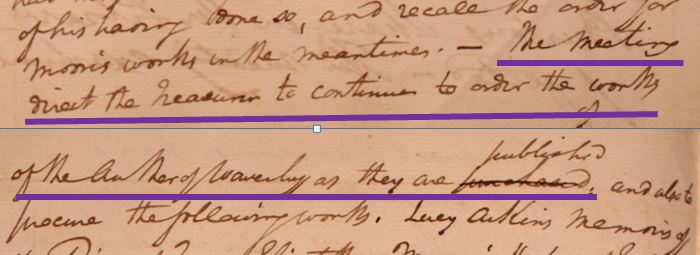 of his having done so, and recale the order for
Morris works in the meantime. — The Meeting
direct the Treasurer to continue to order the works
of
published
of the Author of Waverley as they are purchased, and also to
procure the following works. Lucy Aikins Memoirs of